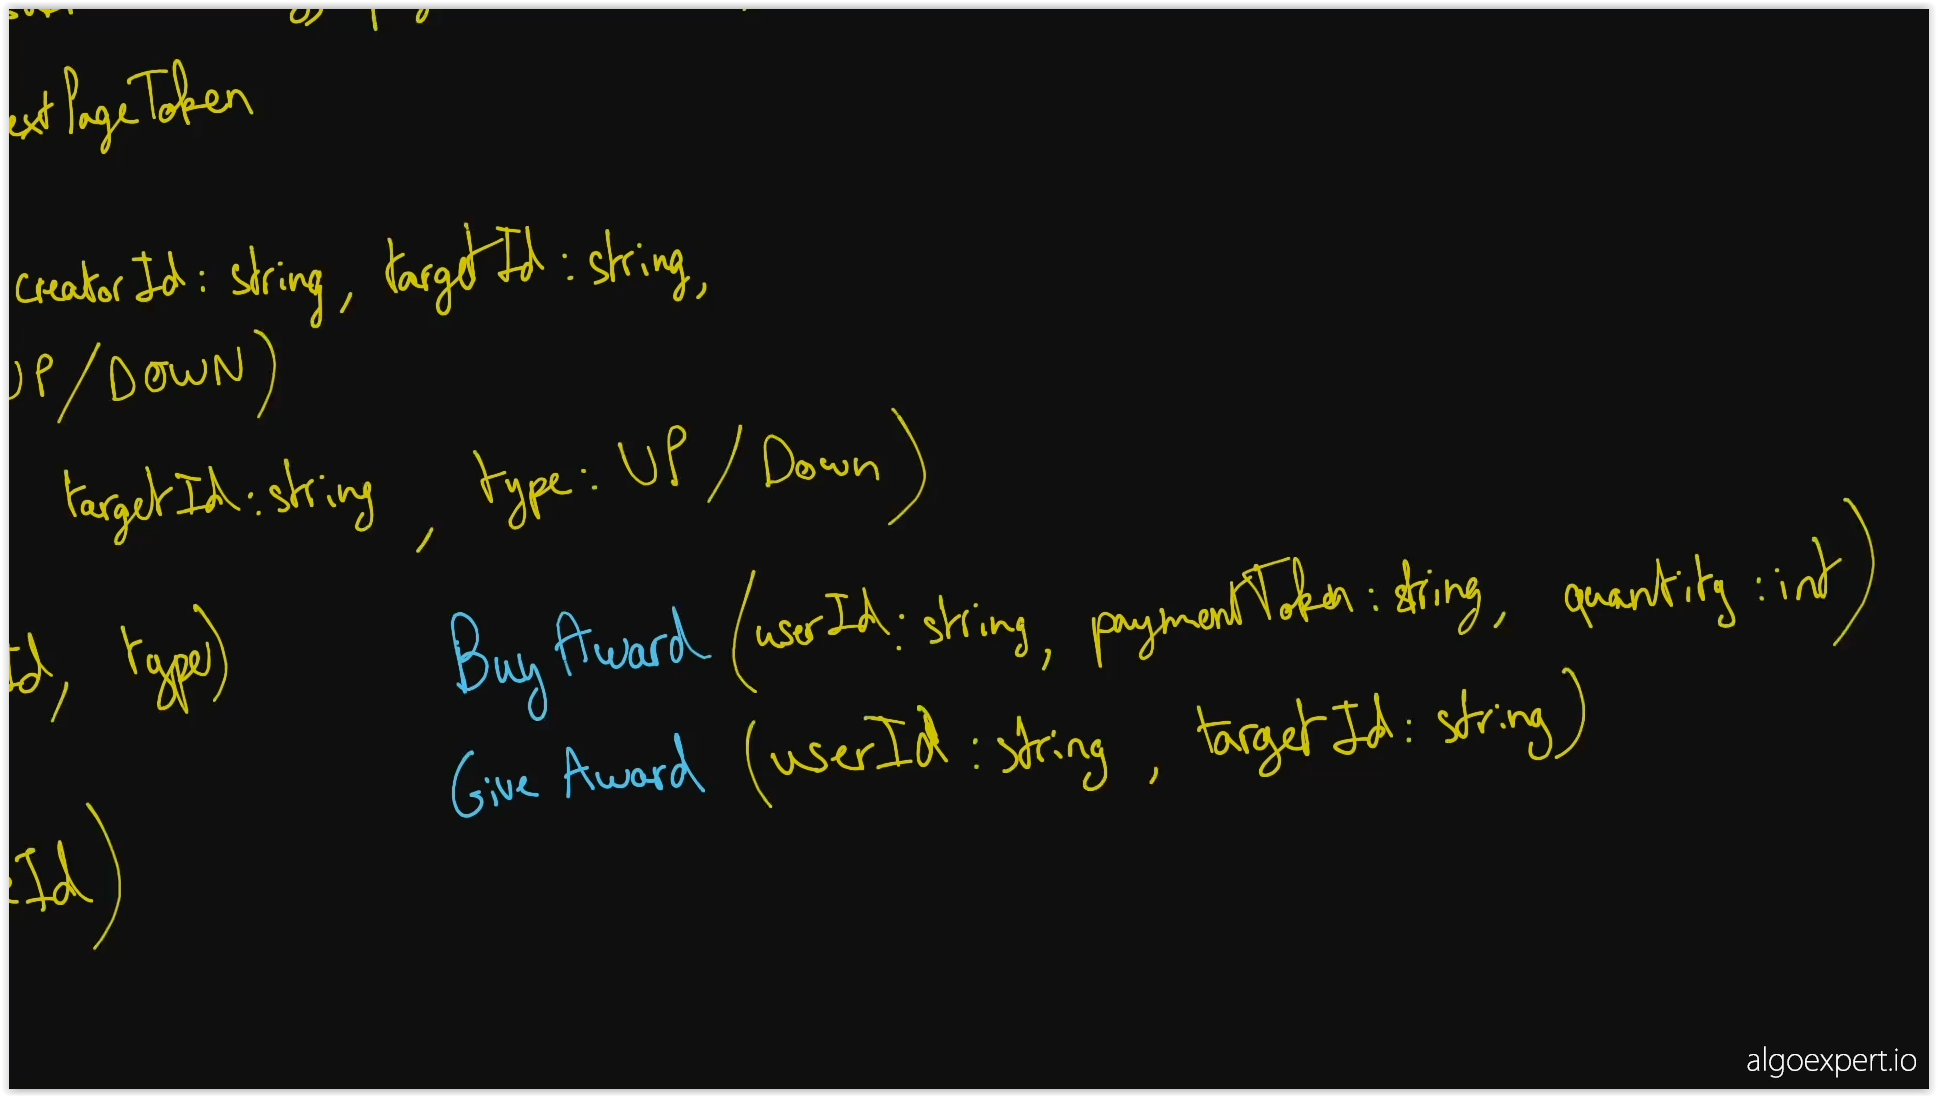 PageToken
creatorId: string, targetId: string,
UP/DOWN)
targetId: string, type: UP/Down)
Id, type)
BuyAward (userId: string, paymentToken: string, quantity: int)
Give Award (userId: string, targetId: string)
Id)
algoexpert.io